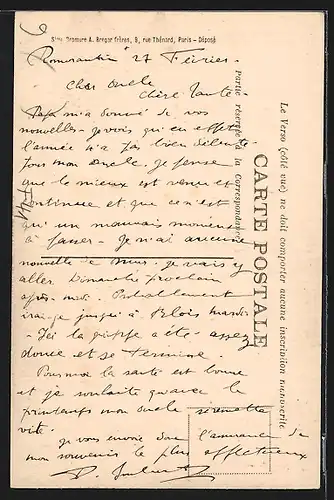 Simi Bromure A. Breger frères, 9, rue Thénard, Paris - Déposé
Romorantin 27 Février
Cher oncle
Chère Tante
Papa m'a donné de vos
nouvelles - je vois qu'en effet
l'année n'a pas bien débuté
pour mon oncle. Je pense
que le mieux est venu et
continue et que ce n'est
qu'un mauvais moment
à passer - Je n'ai aucune
nouvelle de je vais y
aller Dimanche prochain
après-midi.
irai-je jusqu'à Blois mardi
- Ici la grippe a été assez
douce et se termine.
Pour moi la santé est bonne
et je souhaite qu'avec le
printemps mon oncle se remette
vite.
je vous envoie l'assurance de
mon souvenir le plus affectueux
Partie réservée à la Correspondance
CARTE POSTALE
Le Verso (côté vue) ne doit comporter aucune inscription manuscrite